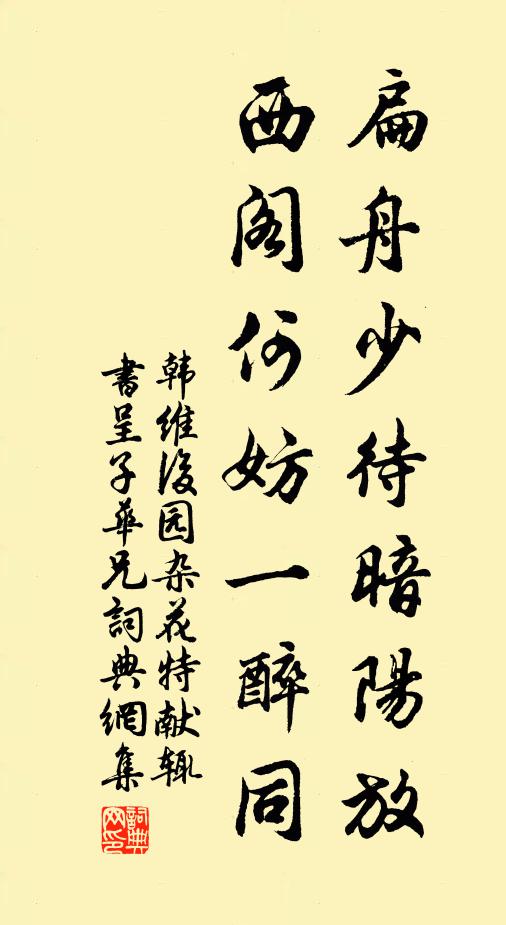 扁舟少待暗陽放
西阁何妨一醉同
韩维後园杂花特献辄
書呈子華兄詞典網集
詞典
网印